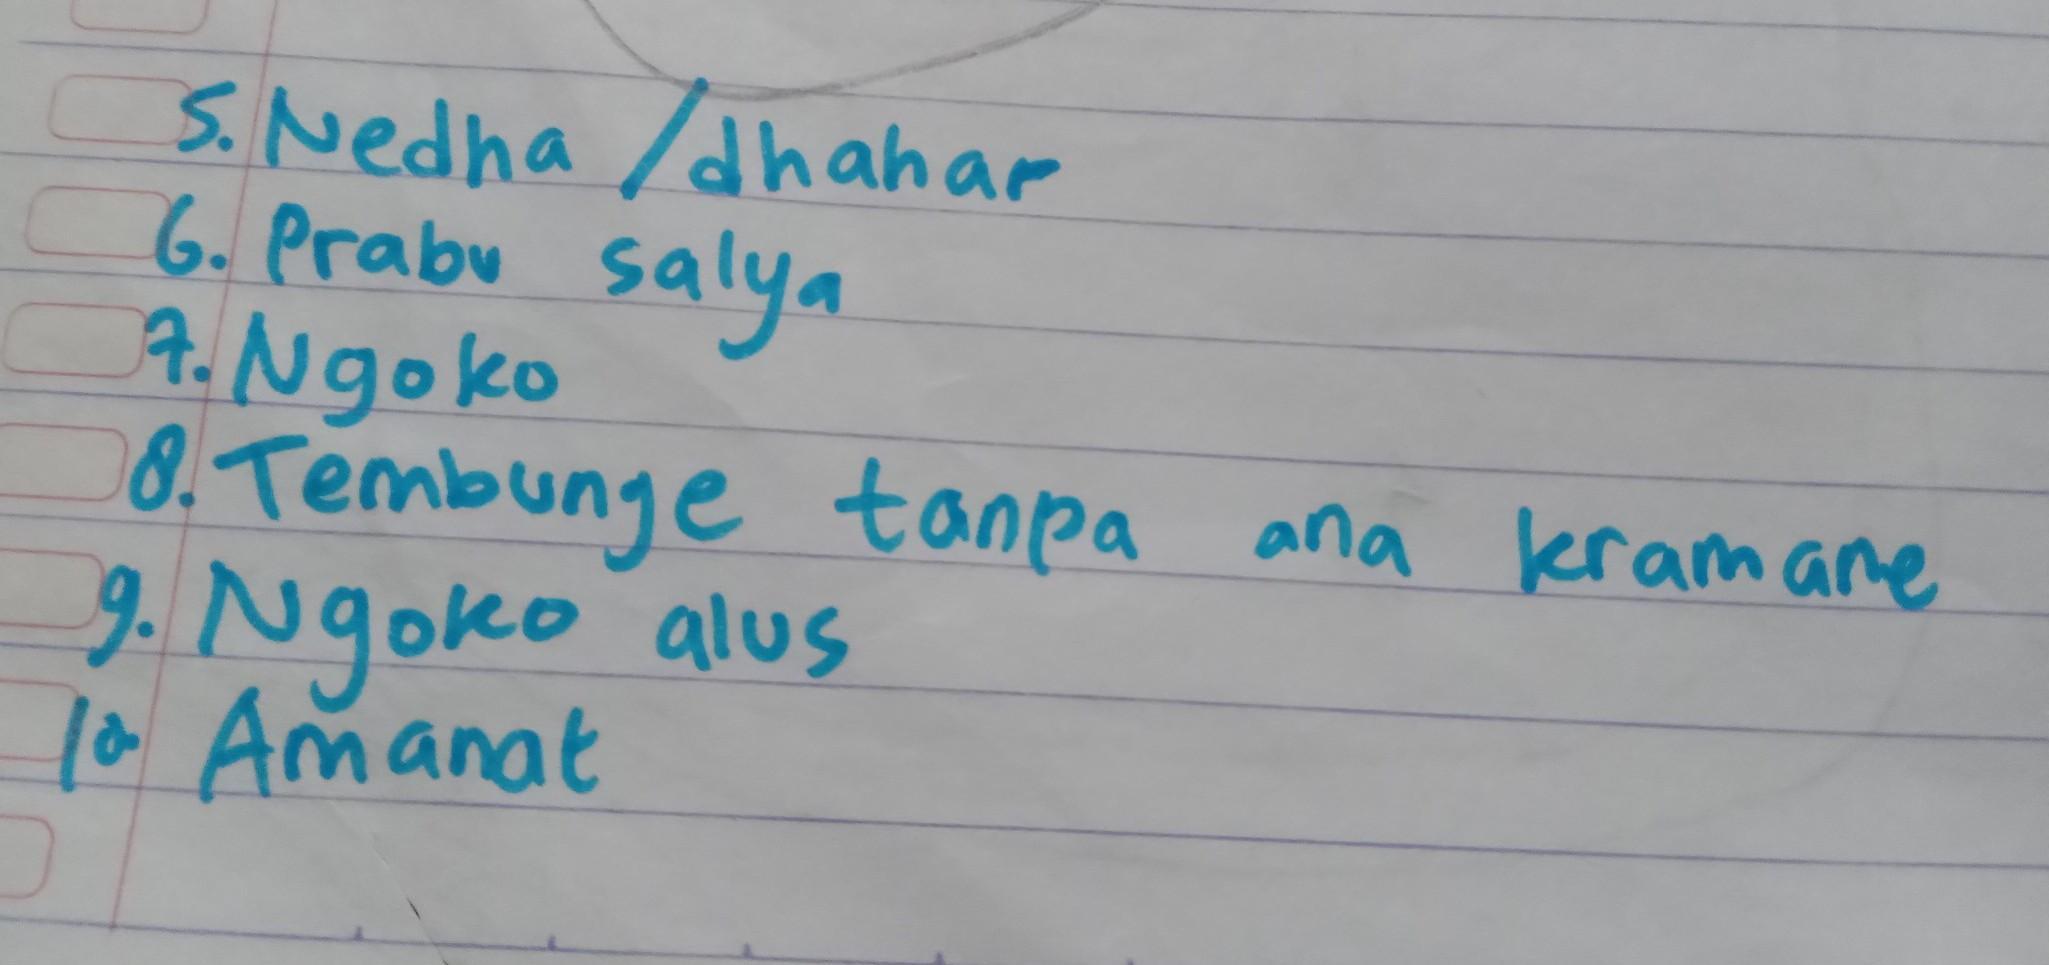 5. Nedha / dhahar
6. Prabu salya
7. Ngoko
8. Tembunge tanpa ana kramane
9. Ngoko alus
10 Amanat